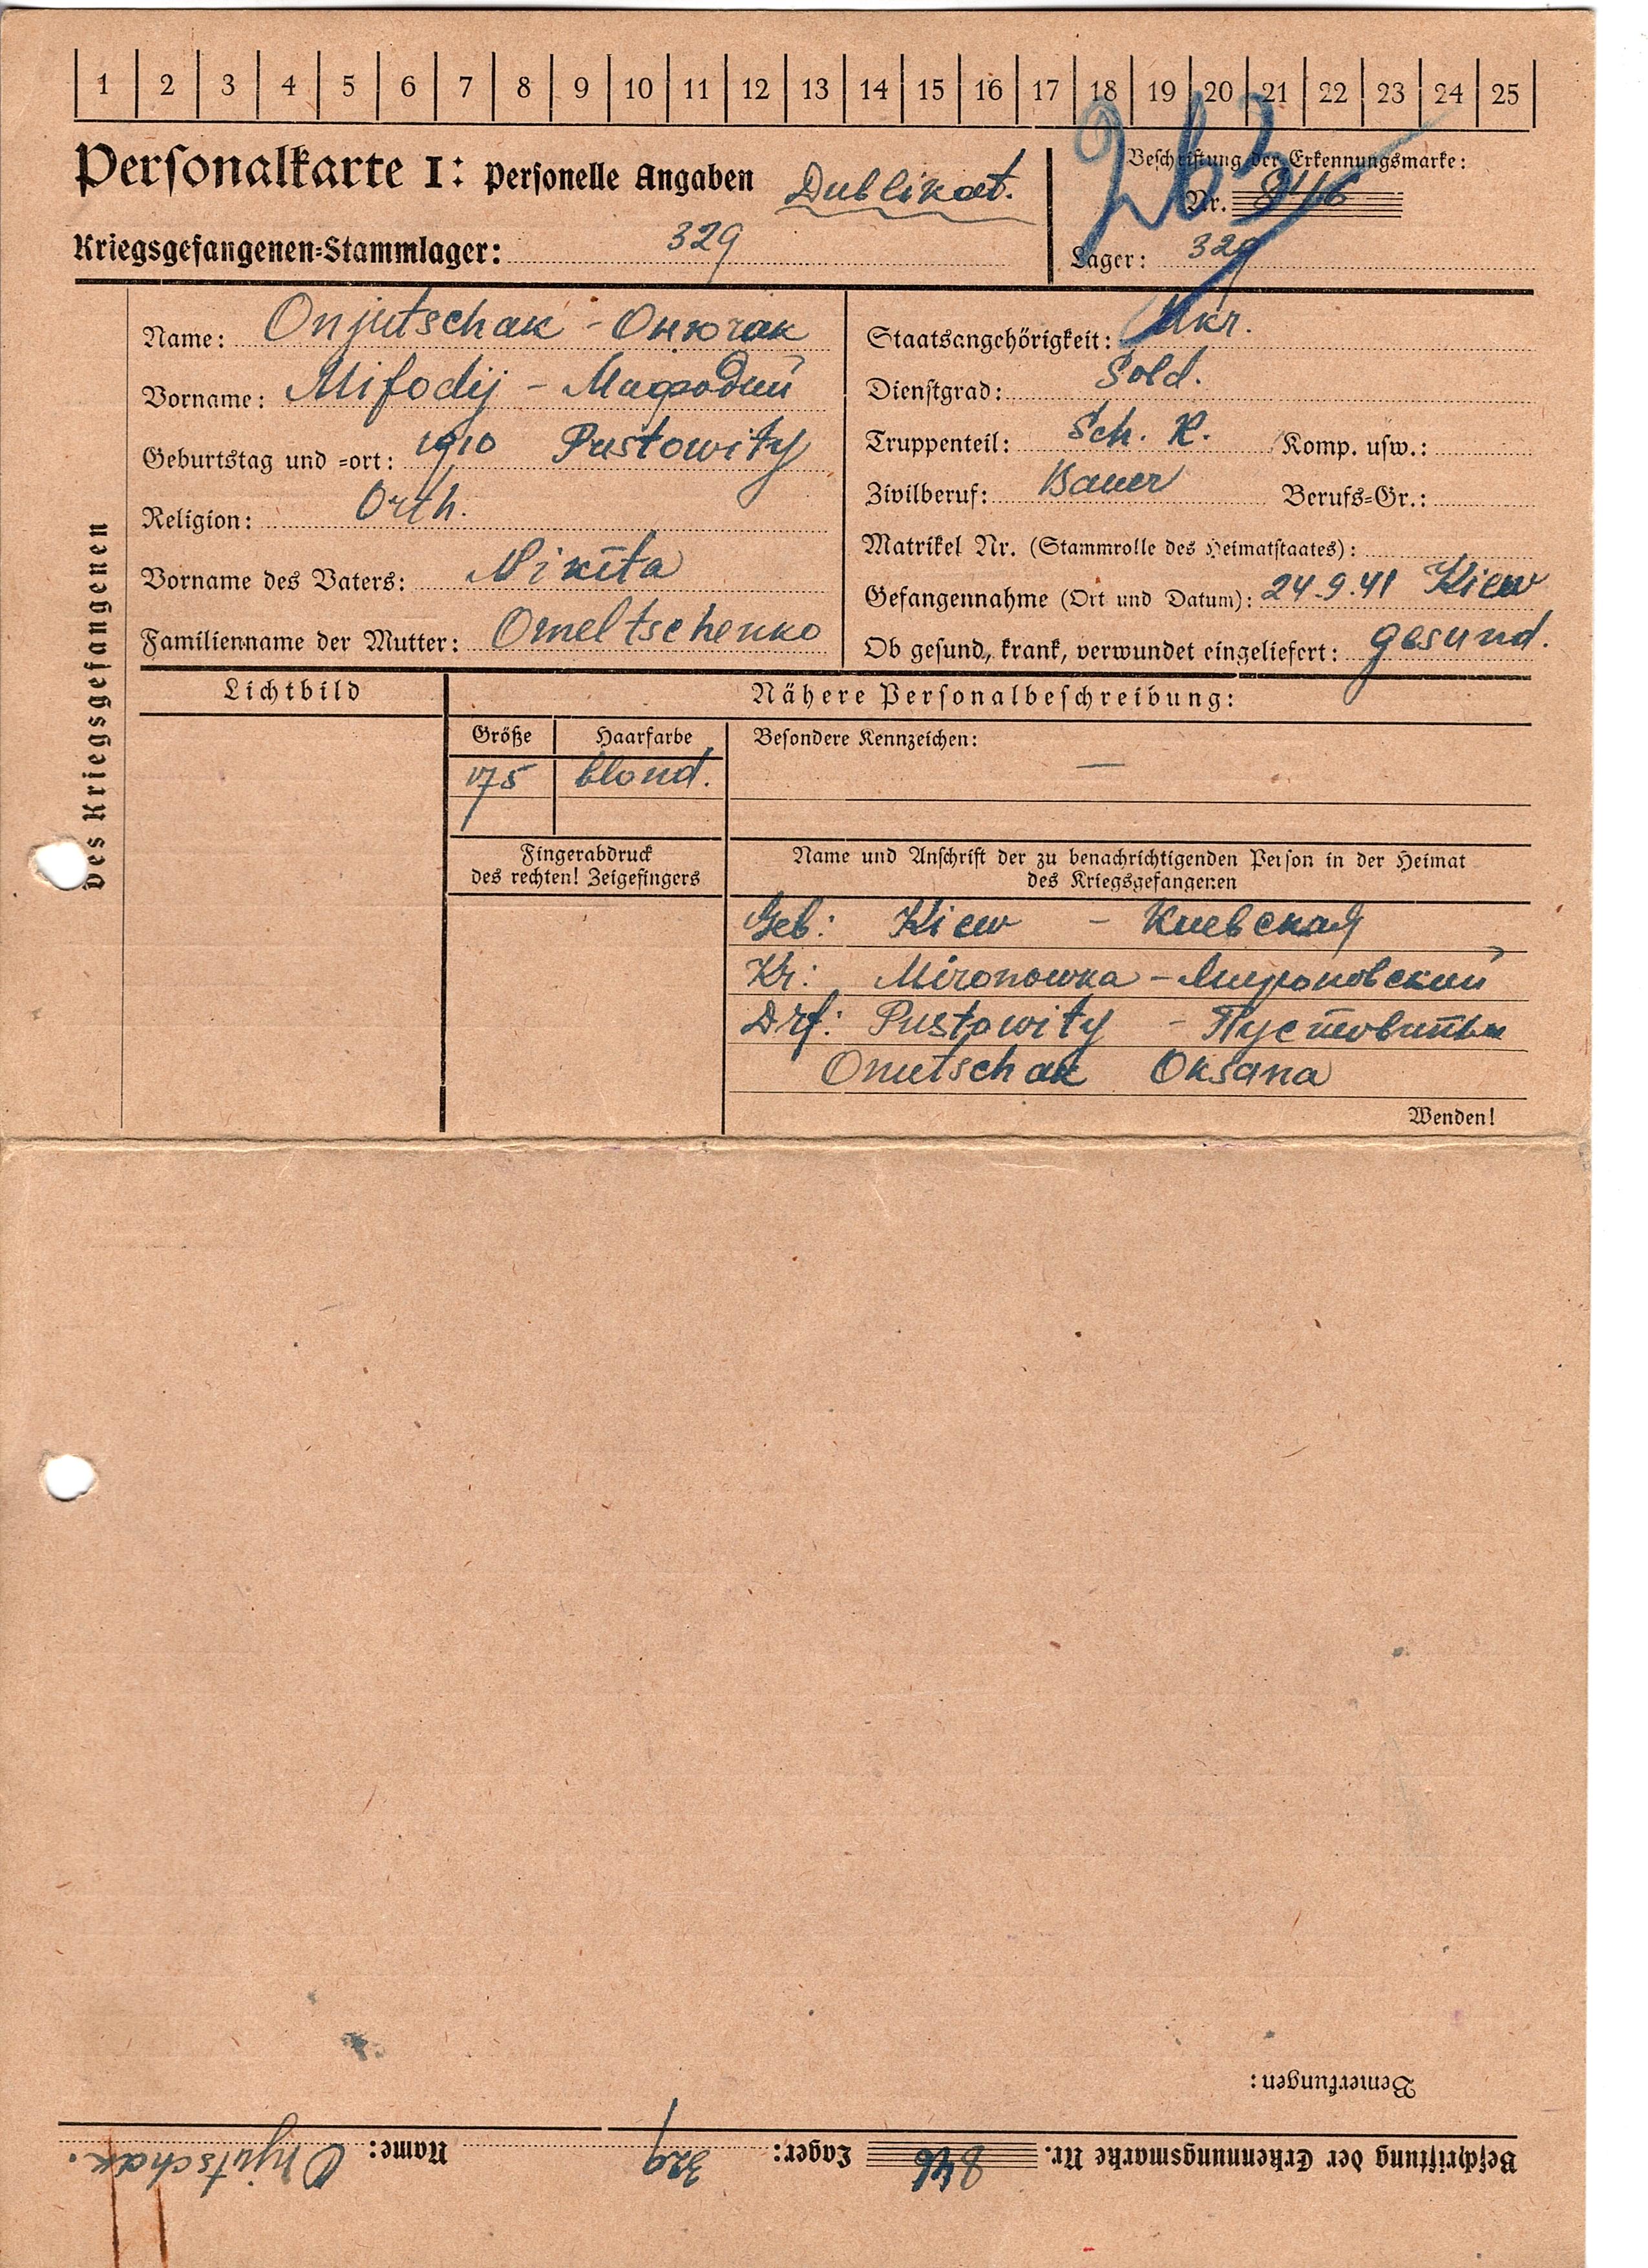 1 2 3 4 5 6 7 8 9 10 11 12 13 14 15 16 17 18 19 20 21 22 23 24 25
Personalkarte I: Personelle Angaben Dublikat.
Beschriftung der Erkennungsmarke:
Nr. 846
Kriegsgefangenen-Stammlager: 329
Lager: 329
Des Kriegsgefangenen
Name: Onjutschak - Онючак
Vorname: Mifodij - Мафодий
Geburtstag und -ort: 1910 Pustowity
Religion: Orth.
Vorname des Vaters: Nikita
Familienname der Mutter: Omeltschenko
Staatsangehörigkeit: Ukr.
Dienstgrad: Sold.
Truppenteil: Sch. R. Komp. usw.:
Zivilberuf: Bauer Berufs-Gr.:
Matrikel Nr. (Stammrolle des Heimatstaates):
Gefangennahme (Ort und Datum): 24.9.41 Kiew
Ob gesund, krank, verwundet eingeliefert: gesund.
Lichtbild
Nähere Personalbeschreibung:
Größe Haarfarbe Besondere Kennzeichen:
175 blond. —
Fingerabdruck
des rechten! Zeigefingers
Name und Anschrift der zu benachrichtigenden Person in der Heimat
des Kriegsgefangenen
Geb: Kiew - Киевская
Kr: Mironowka - Мироновский
Drf: Pustowity - Пустовиты
Onutschak Oksana
Wenden!
Bemerkungen:
Beschriftung der Erkennungsmarke Nr. 846 Lager: 329 Name: Onjutschak.